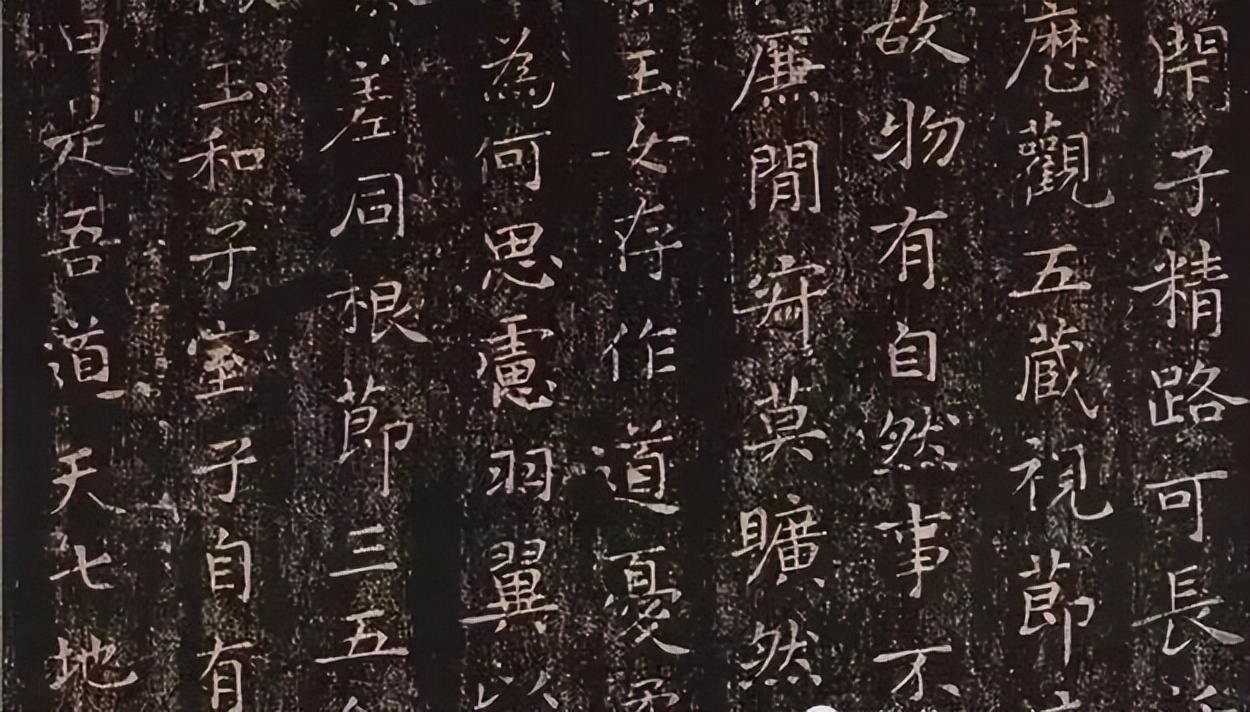 閇子精路可長
歷觀五藏視節
故物有自然事不
廉閒寂莫曠然
玉女存作道憂柔
為何思慮羽翼以
差同根節三五
玉和子室子自有
曰是吾道天七地